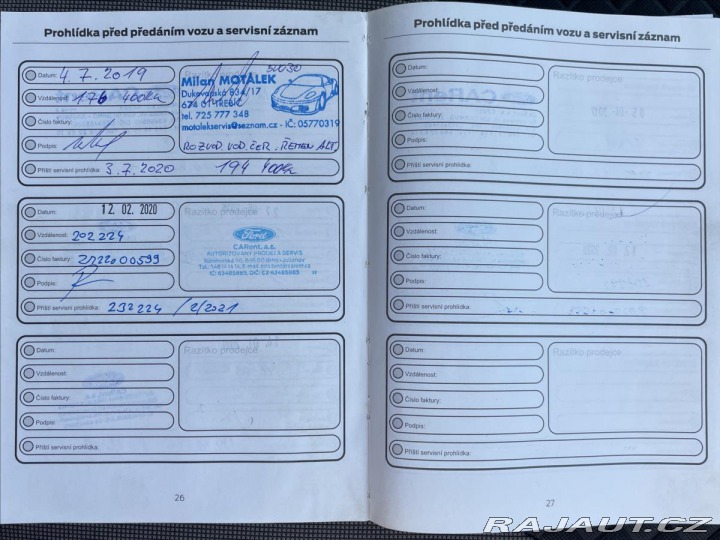 Prohlídka před předáním vozu a servisní záznam
Datum: 4.7.2019
Vzdálenost: 176 400km
Číslo faktury:
Podpis:
Milan MOTÁLEK
Dukovanská 834/17
674 01 TŘEBÍČ
tel. 725 777 348
motalekservis@seznam.cz - IČ: 05770319
ROZVOD. VOD. ČER. ŘEMEN ALT.
Příští servisní prohlídka: 3.7.2020 194 400km
Datum: 12 02. 2020
Vzdálenost: 202224
Číslo faktury:
Podpis:
Razítko prodejce
Ford
CARent, a.s.
AUTORIZOVANÝ PRODEJ A SERVIS
Příští servisní prohlídka: 232224 /2/2021
Datum:
Vzdálenost:
Číslo faktury:
Podpis:
Razítko prodejce
Příští servisní prohlídka:
26
Prohlídka před předáním vozu a servisní záznam
Datum:
Vzdálenost:
Číslo faktury:
Podpis:
Razítko prodejce
Příští servisní prohlídka:
Datum:
Vzdálenost:
Číslo faktury:
Podpis:
Razítko prodejce
Příští servisní prohlídka:
Datum:
Vzdálenost:
Číslo faktury:
Podpis:
Razítko prodejce
Příští servisní prohlídka:
27
RAJAUT.CZ